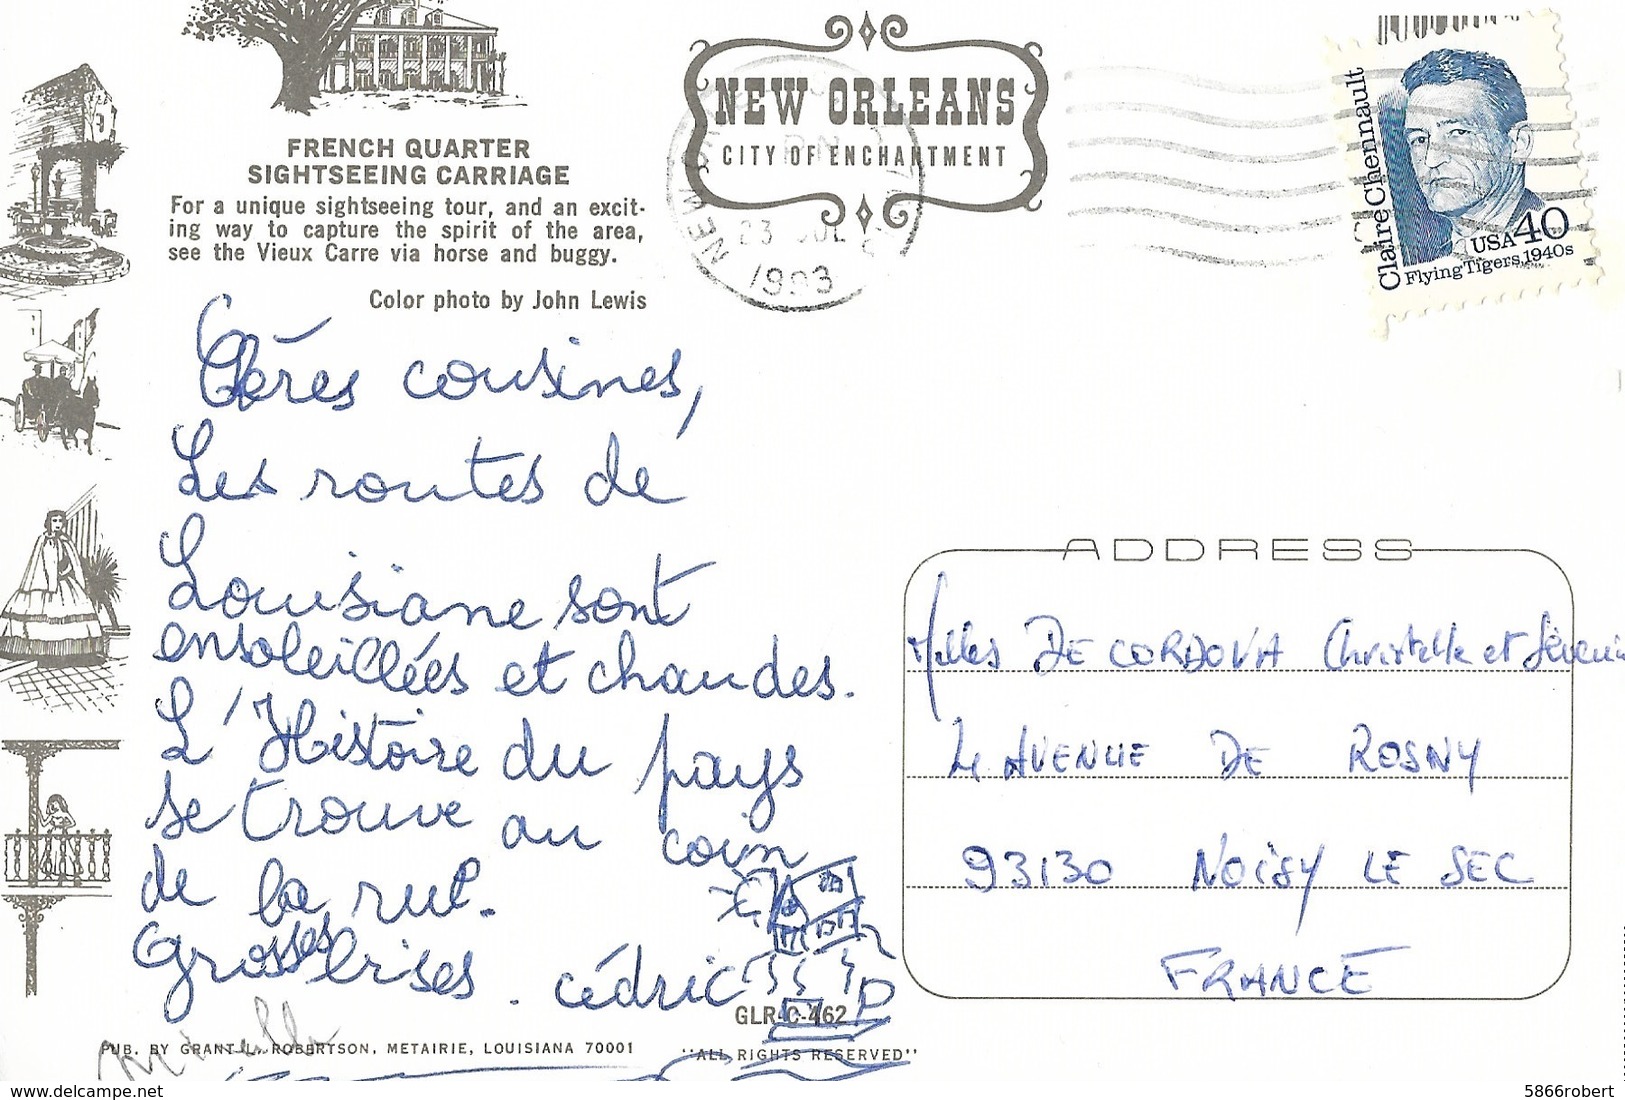 FRENCH QUARTER
SIGHTSEEING CARRIAGE
For a unique sightseeing tour, and an excit-
ing way to capture the spirit of the area,
see the Vieux Carre via horse and buggy.
Color photo by John Lewis
NEW ORLEANS
CITY OF ENCHANTMENT
NEW
PM
23 JUL
1993
Claire Chennault
USA 40
Flying Tigers, 1940s
Chères cousines,
Les routes de
Louisiane sont
ensoleillées et chaudes.
L'Histoire du pays
se trouve au coin
de la rue.
Grosses bises. cédric
ADDRESS
Melles DE CORDOVA Christelle et Séverine
4 AVENUE DE ROSNY
93130 NOISY LE SEC
FRANCE
GLR-C-462
PUB. BY GRANT L. ROBERTSON, METAIRIE, LOUISIANA 70001
"ALL RIGHTS RESERVED"
5866robert